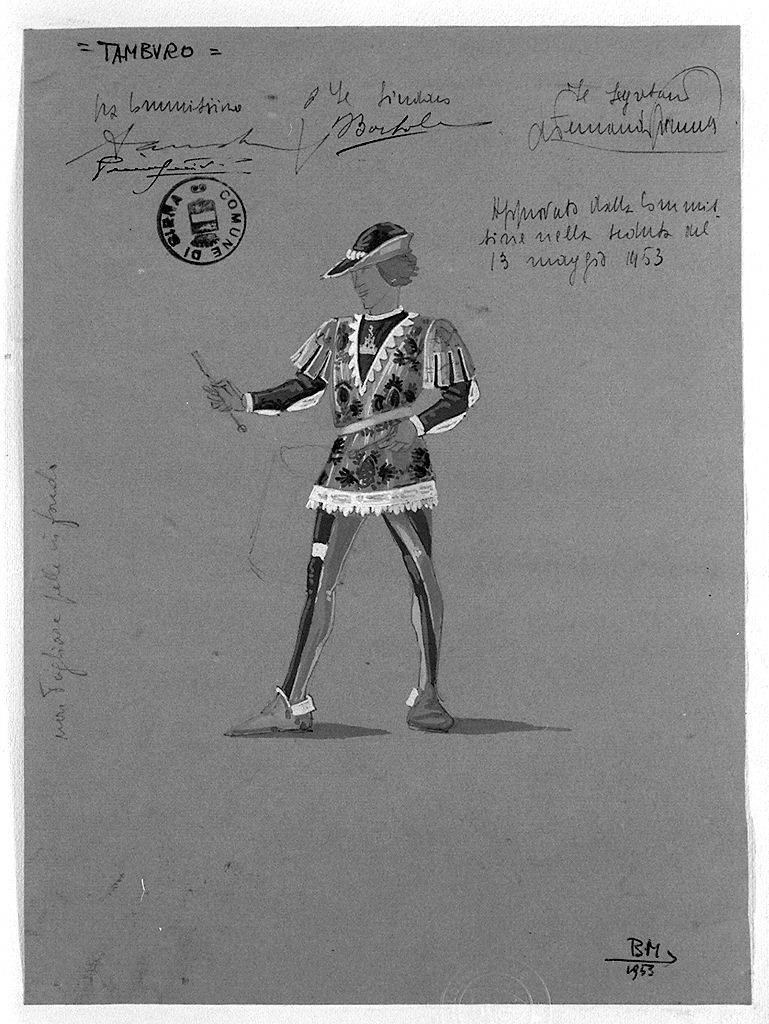 = TAMBURO =
La Commissione
p Il Sindaco
Il Segretario
COMUNE DI SIENA
Approvato dalla Commis-
sione nella seduta del
13 maggio 1953
non Tagliare pelle in fondo
BM
1953